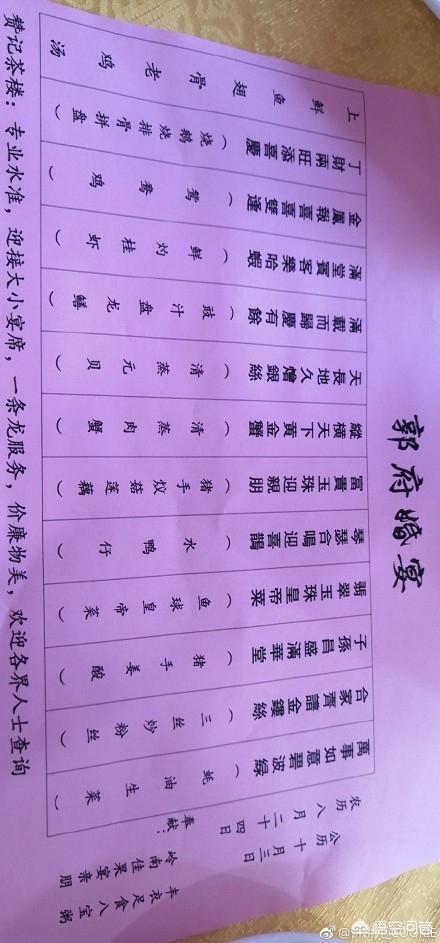 郭府婚宴
农历八月二十四日
公历十月三日
上鲜鱼翅骨老鸡汤
丁財兩旺添喜慶（烧鹅烧排骨拼盘）
金鳳報喜喜雙逢（鸳鸯鸡）
滿堂賓客樂哈蝦（鲜灼桂虾）
滿載而歸慶有餘（豉汁盘龙鳝）
天長地久燴銀絲（清蒸元贝）
縱横天下黄金蟹（清蒸肉蟹）
富貴玉珠迎親朋（猪手炆菇莲藕）
琴瑟合鳴迎喜鵲（水鸭仔）
翡翠玉珠皇帝菜（鱼球皇帝菜）
子孫昌盛滿華堂（猪手姜酸）
合家齊譜金鏤絲（三丝炒粉丝）
萬事如意碧波绿（蚝油生菜）
奉献：
岭南佳果宴亲朋
丰衣足食八宝粥
赞记茶楼：专业水准，迎接大小宴席，一条龙服务，价廉物美，欢迎各界人士查询
悟空问答